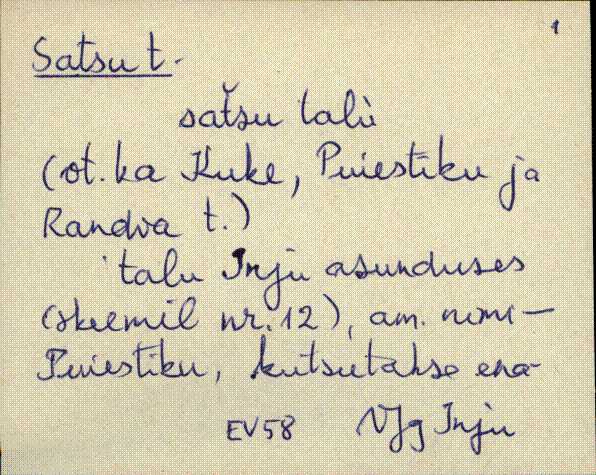 1
Satsu t.
satšu talù
(ot. ka Kuke, Puiestiku ja
Randva t.)
talu Inju asunduses
(skeemil nr. 12), am. nimi —
Puiestiku, kutsutakse ena-
EV58 VJg Inju